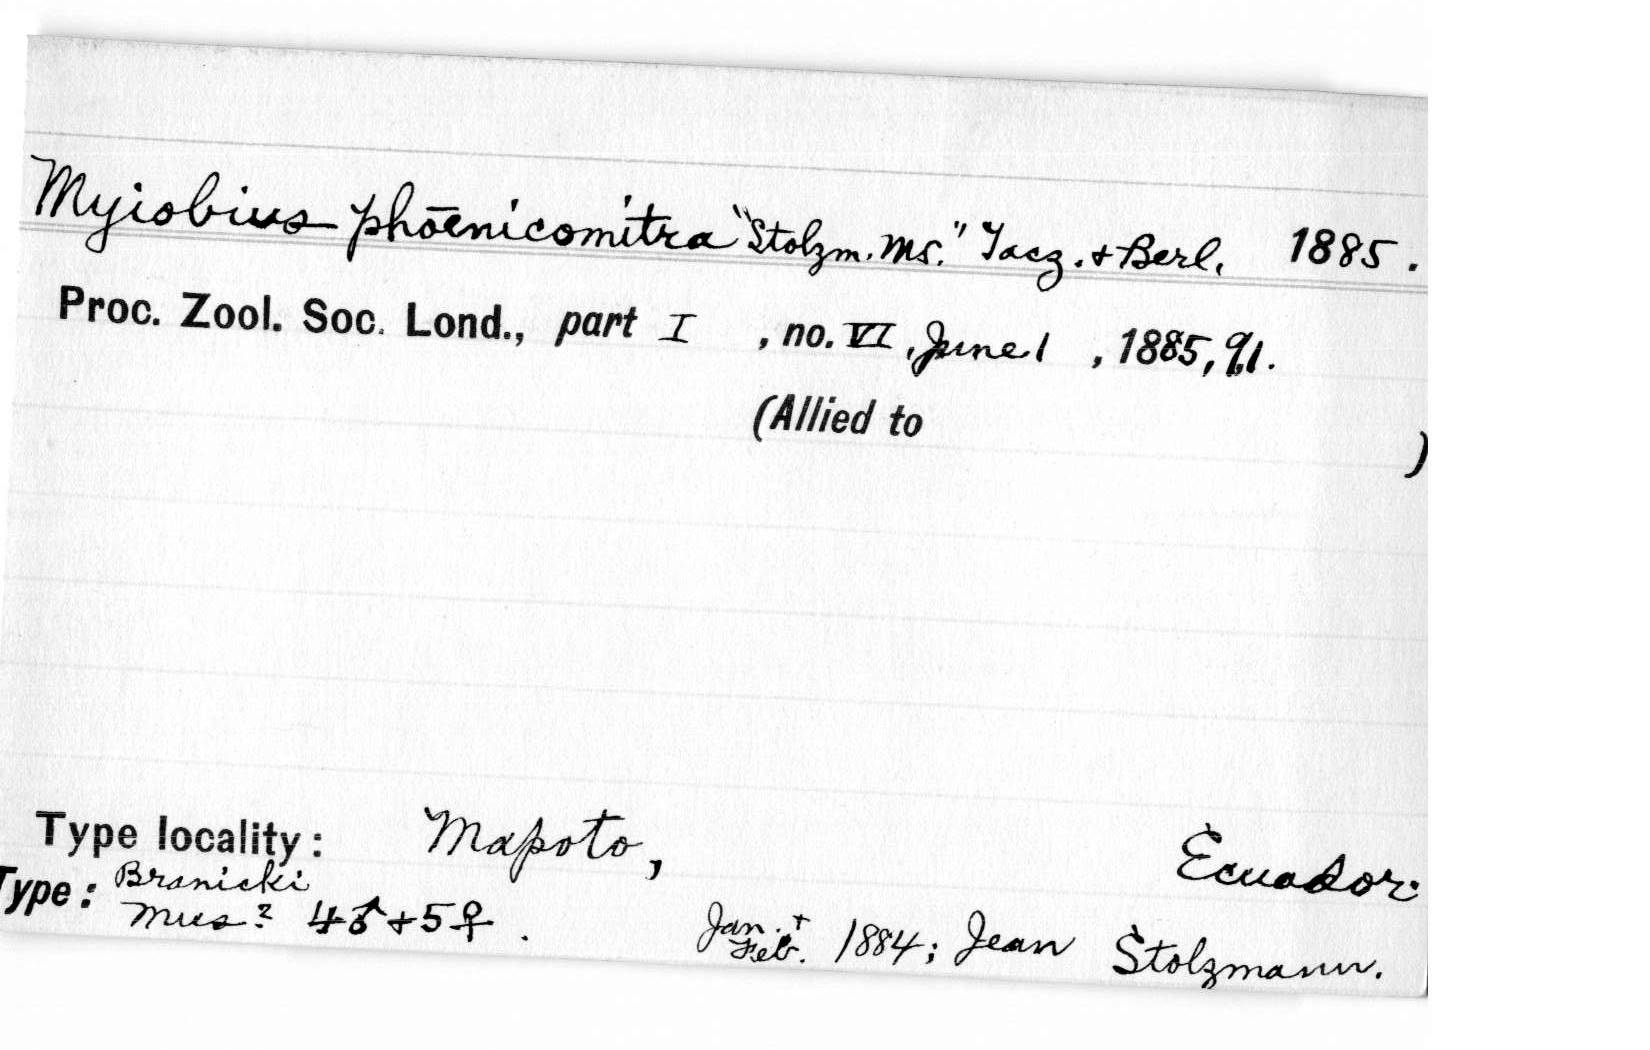 Myiobius phœnicomitra "Stolzm. MS." Tacz. + Berl. 1885.
Proc. Zool. Soc. Lond., part I , no. VI, June 1 , 1885, 91.
(Allied to )
Type locality: Mapoto, Ecuador.
Type: Branicki Mus? 4♂+5♀. Jan. + Feb. 1884; Jean Stolzmann.